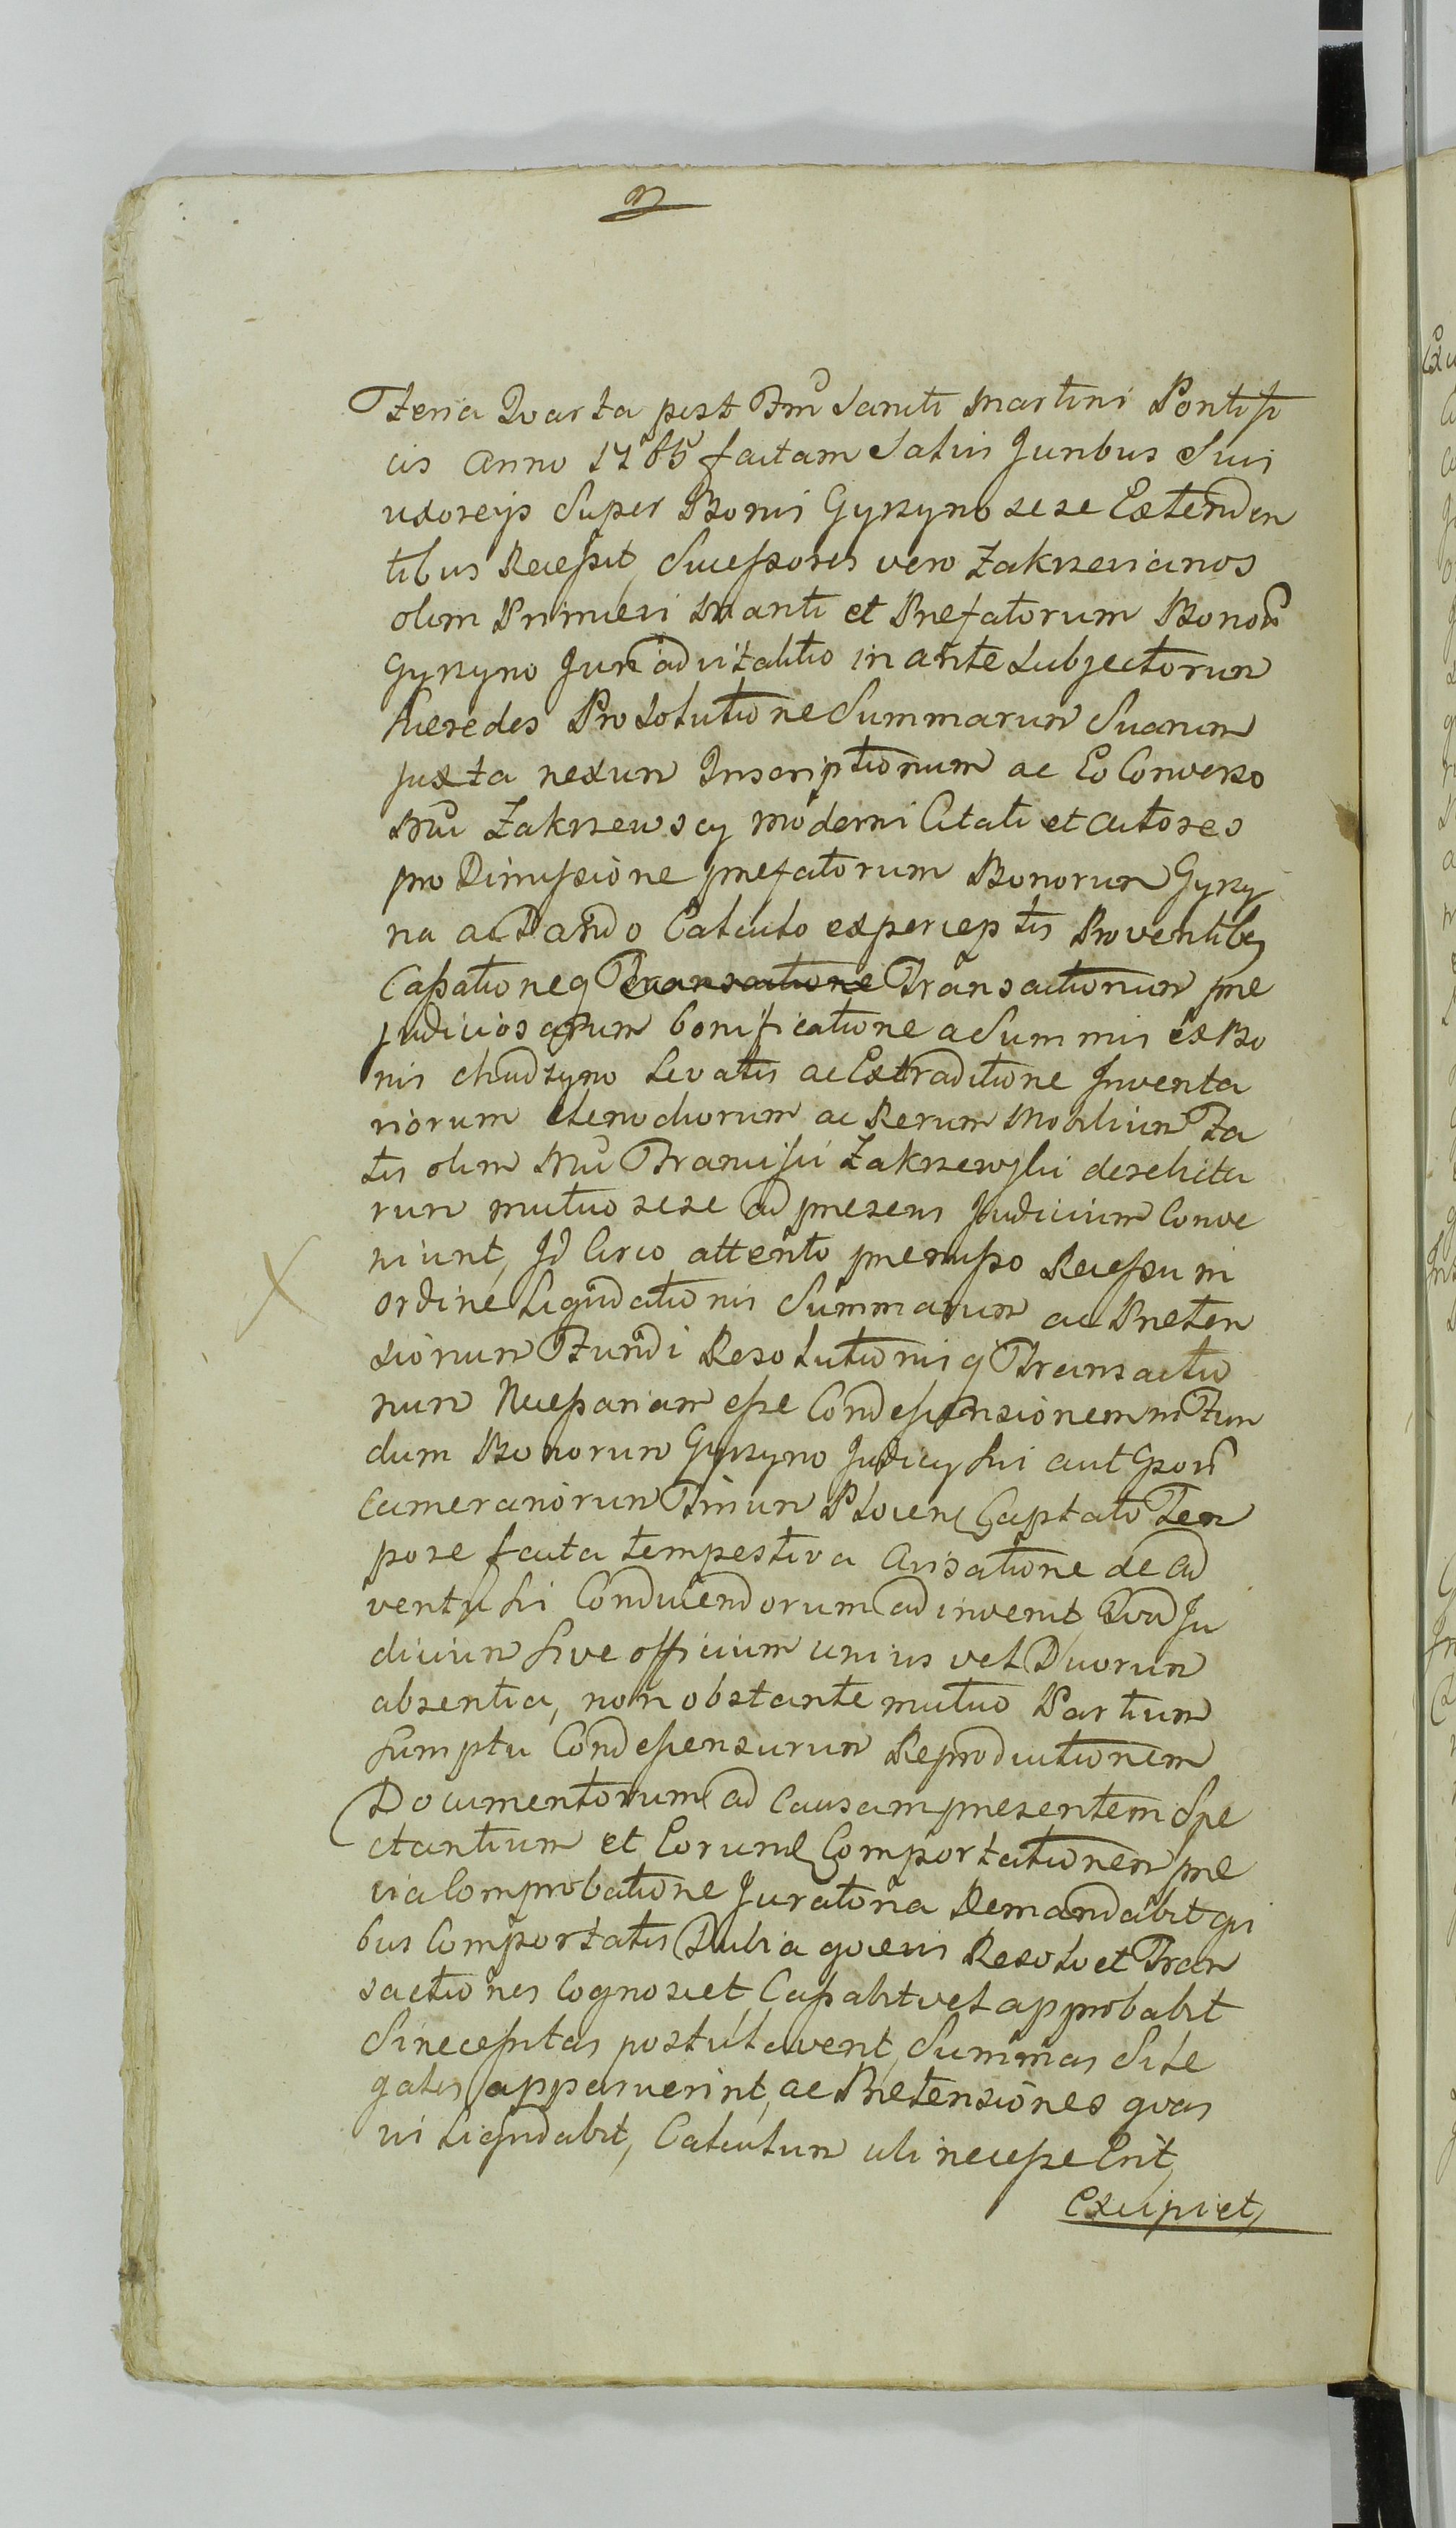 Feria Quarta post Fm̃ Sancti Martini Pontifi
cis Anno 1765 factam Salvis Juribus Suis
uxoreis Super Bonis Gyrzyno sese Extenden
tibus Recessit, Sucessores vero Zakrzevianos
olim Primievi Mariti et Prefatorum Bonorũ
Gyrzyno Juri advitalitio in ante Subjectorum
Haeredes Pro Solutione Summarum Suarum
juxta nexum Inscriptionum ac Eo Converso
Mci Zakrzewscy moderni Citati et Actores
pro Dimissione prefatorum Bonorum Gyrzy
na ac Dando Calculo ex perceptis Proventibq
Cassationeq Transactione Transactionum pre
judiciosarum bonificatione a Summis ex Bo
nis Chudzyno Levatis ac Extraditione Inventa
riorum Clenodiorum ac Rerum Mobilium Fa
tis olim Mci Francisci Zakrzewski derelicta
rum mutuo sese ad presens Judicium Conve
niunt, Id Circo attento premisso Recessu in
ordine Liquidationis Summarum ac Preten
sionum Fundi Resolutionis q Transactio
num Necessariam esse Condescensionem in Fun
dum Bonorum Gyrzyno Judicy Sui aut Gsorũ
Camerariorum Trium Plocen Captato Tem
pore facta tempestiva Avisatione de Ad
ventu Sui Conducendorum adinvenit, Quod Ju
dicium Sive officium unius vel Duorum
absentia, non obstante mutuo Partium
Sumptu Condescensurum Reproductionem
Documentorum ad Causam presentem Spe
ctantium et Eorund Comportationem pre
via Comprobatione Juratoria Demandabit qui
bus Comportatis Dubia quaevis Resolvet Tran
sactiones Cognoscet, Cassabit vel approbabit
Si necessitas postulaverit, Summas Si Le
gales apparuerint, ac Pretensiones quas
vis Liquidabit, Calculum ubi necesse Erit,
Excipiet,